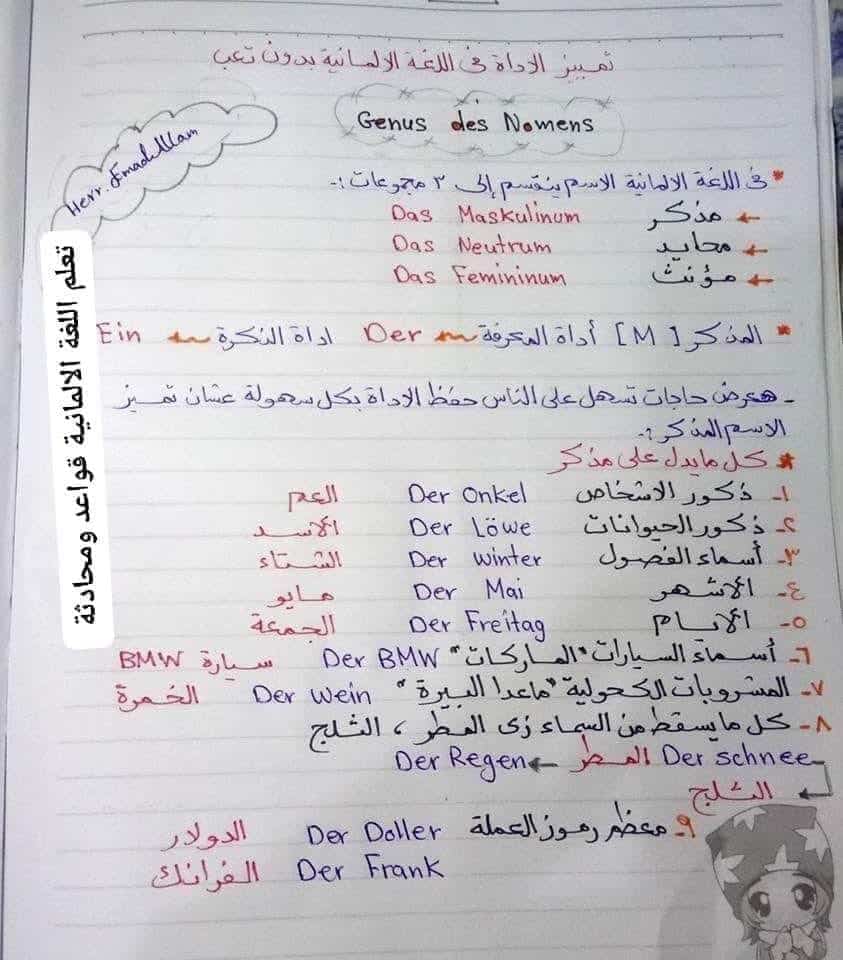 تمييز الاداة فى اللغة الالمانية بدون تعب
Genus des Nomens
Herr. Emad Allam
تعلم اللغة الالمانية قواعد ومحادثة
* فى اللغة الالمانية الاسم ينقسم إلى ٣ مجموعات :-
← مذكر Das Maskulinum
← محايد Das Neutrum
← مؤنث Das Femininum
* المذكر [M] أداة المعرفة Der اداة النكرة Ein
- هعرض حاجات تسهل على الناس حفظ الاداة بكل سهولة عشان تميز
الاسم المذكر :-
* كل ما يدل على مذكر
١- ذكور الاشخاص Der Onkel العم
٢- ذكور الحيوانات Der Löwe الاسد
٣- أسماء الفصول Der Winter الشتاء
٤- الاشهر Der Mai مايو
٥- الايام Der Freitag الجمعة
٦- أسماء السيارات "الماركات" Der BMW سيارة BMW
٧- المشروبات الكحولية "ماعدا البيرة" Der Wein الخمرة
٨- كل ما يسقط من السماء زى المطر ، الثلج
Der schnee المطر ← Der Regen
الثلج
٩- معظم رموز العملة Der Doller الدولار
Der Frank الفرانك